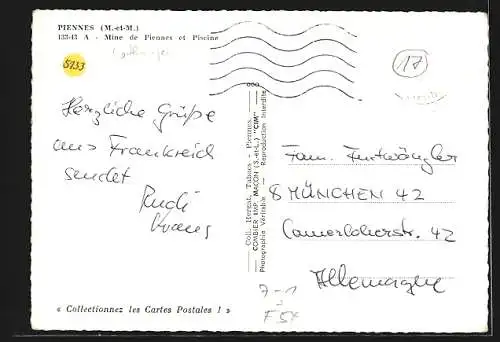 PIENNES (M.-et-M.)
133-43 A - Mine de Piennes et Piscine
5133
17
Herzliche Grüße
aus Frankreich
sendet
Rudi
Coll. Hergat, Tabacs - Piennes.
COMBIER IMP. MACON (S.-et-L.) "CIM"
Photographie Véritable - Reproduction Interdite
Fam. Furtwängler
8 MÜNCHEN 42
Camerloherstr. 42
Allemagne
7-1
F5x
« Collectionnez les Cartes Postales ! »